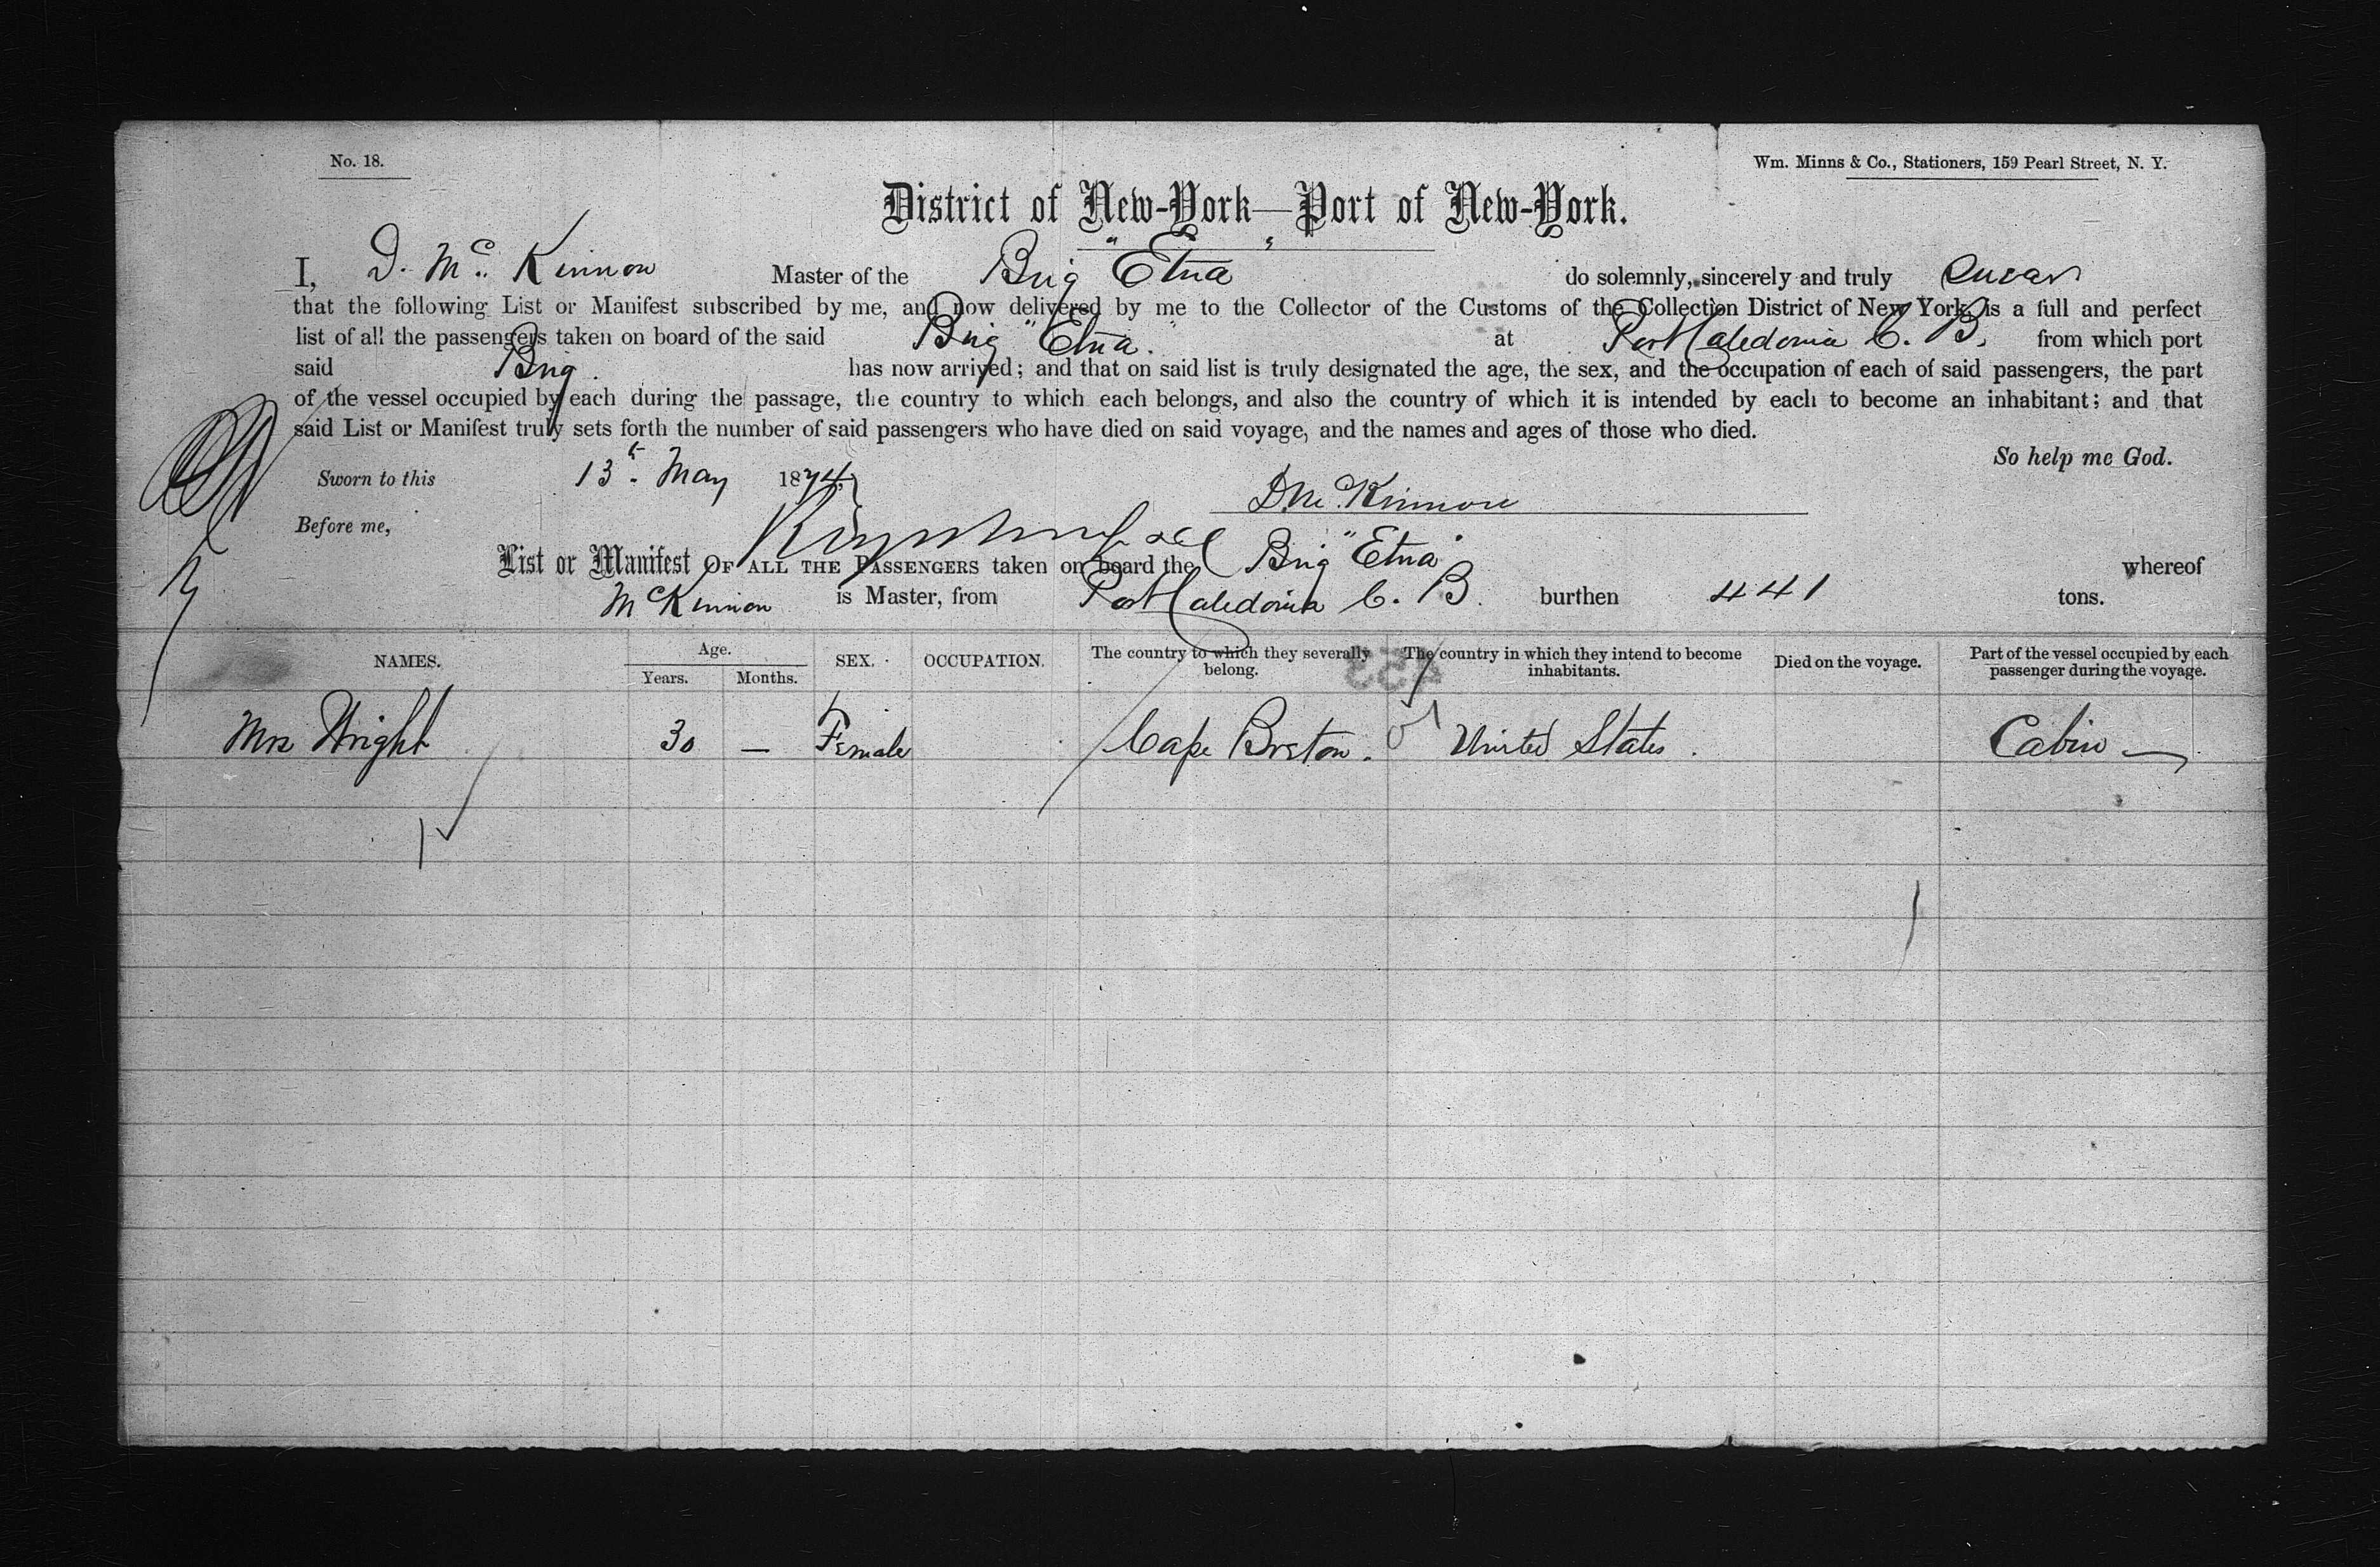 No. 18.
Wm. Minns & Co., Stationers, 159 Pearl Street, N. Y.
District of New-York—Port of New-York.
I, D. Mc. Kinnon Master of the Brig "Etna" do solemnly, sincerely and truly swear
that the following List or Manifest subscribed by me, and now delivered by me to the Collector of the Customs of the Collection District of New York, is a full and perfect
list of all the passengers taken on board of the said Brig "Etna." at Port Caledonia C. B. from which port
said Brig. has now arrived; and that on said list is truly designated the age, the sex, and the occupation of each of said passengers, the part
of the vessel occupied by each during the passage, the country to which each belongs, and also the country of which it is intended by each to become an inhabitant; and that
said List or Manifest truly sets forth the number of said passengers who have died on said voyage, and the names and ages of those who died.
So help me God.
Sworn to this 13th. May 1874
D. Mc. Kinnon
Before me,
List or Manifest OF ALL THE PASSENGERS taken on board the Brig "Etna" whereof
McKinnon is Master, from Port Caledonia C. B. burthen 441 tons.
NAMES. Age. Years. Months. SEX. OCCUPATION. The country to which they severally belong. The country in which they intend to become inhabitants. Died on the voyage. Part of the vessel occupied by each passenger during the voyage.
453
Mrs Wright 30 — Female Cape Breton. United States. Cabin —
1